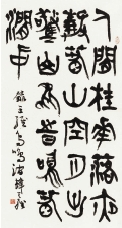 人閒桂華落夜
靜春山空月出
驚山鳥時鳴春
澗中
錄王維鳥鳴